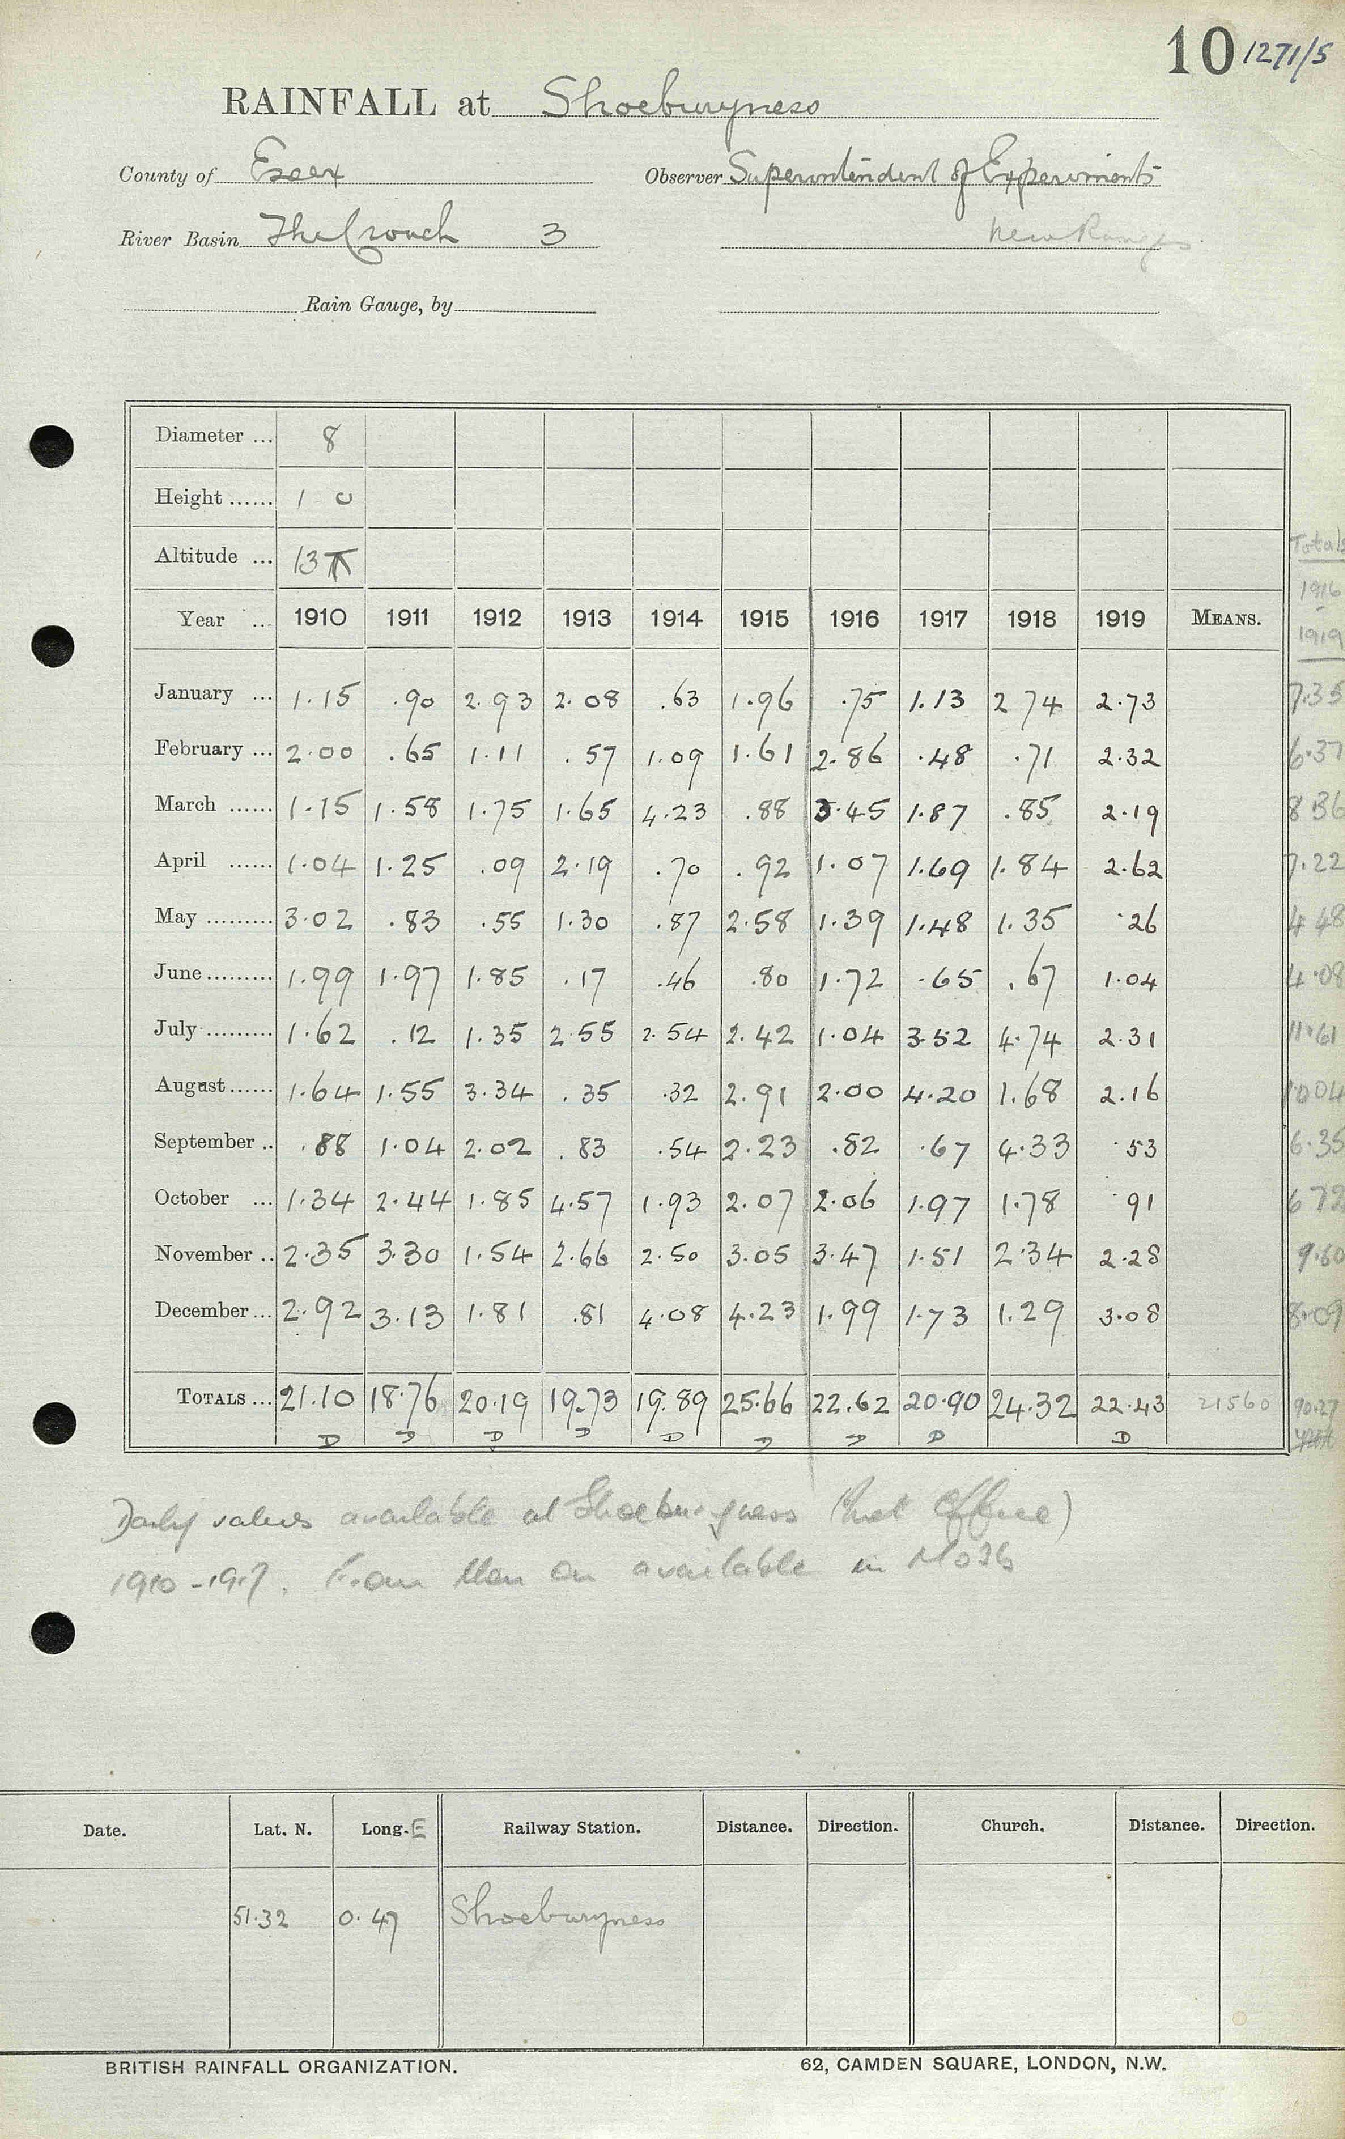 10 1271/5
RAINFALL at Shoeburyness
County of Essex Observer Superintendent of Experiments
River Basin The Crouch 3 New Ranges
Rain Gauge, by
Diameter ... 8
Height ...... 1 0
Altitude ... 13
Totals
1916
1919
Year ... 1910 1911 1912 1913 1914 1915 1916 1917 1918 1919 MEANS.
January ... 1.15 .90 2.93 2.08 .63 1.96 .75 1.13 2 74 2.73 7.35
February ... 2.00 .65 1.11 .57 1.09 1.61 2.86 .48 .71 2.32 6.37
March ...... 1.15 1.58 1.75 1.65 4.23 .88 3.45 1.87 .85 2.19 8 36
April ...... 1.04 1.25 .09 2.19 .70 .92 1.07 1.69 1.84 2.62 7.22
May ......... 3.02 .83 .55 1.30 .87 2.58 1.39 1.48 1.35 .26 4 48
June ......... 1.99 1.97 1.85 .17 .46 .80 1.72 .65 .67 1.04 4.08
July ......... 1.62 .12 1.35 2.55 2.54 2.42 1.04 3.52 4.74 2.31 11.61
August ...... 1.64 1.55 3.34 .35 .32 2.91 2.00 4.20 1.68 2.16 10 04
September .. .88 1.04 2.02 .83 .54 2.23 .82 .67 4.33 .53 6.35
October ... 1.34 2.44 1.85 4.57 1.93 2.07 2.06 1.97 1.78 .91 6 72
November .. 2.35 3.30 1.54 2.66 2.50 3.05 3.47 1.51 2.34 2.28 9.60
December ... 2.92 3.13 1.81 .81 4.08 4.23 1.99 1.73 1.29 3.08 8.09
TOTALS ... 21.10 18.76 20.19 19.73 19.89 25.66 22.62 20.90 24.32 22.43 21560 90.27
D D D D D D D D D
Daily values available at Shoeburyness (Met Office)
1910-1917. From then on available in MO3b
Date. Lat. N. Long. E Railway Station. Distance. Direction. Church. Distance. Direction.
51.32 0.47 Shoeburyness
BRITISH RAINFALL ORGANIZATION. 62, CAMDEN SQUARE, LONDON, N.W.